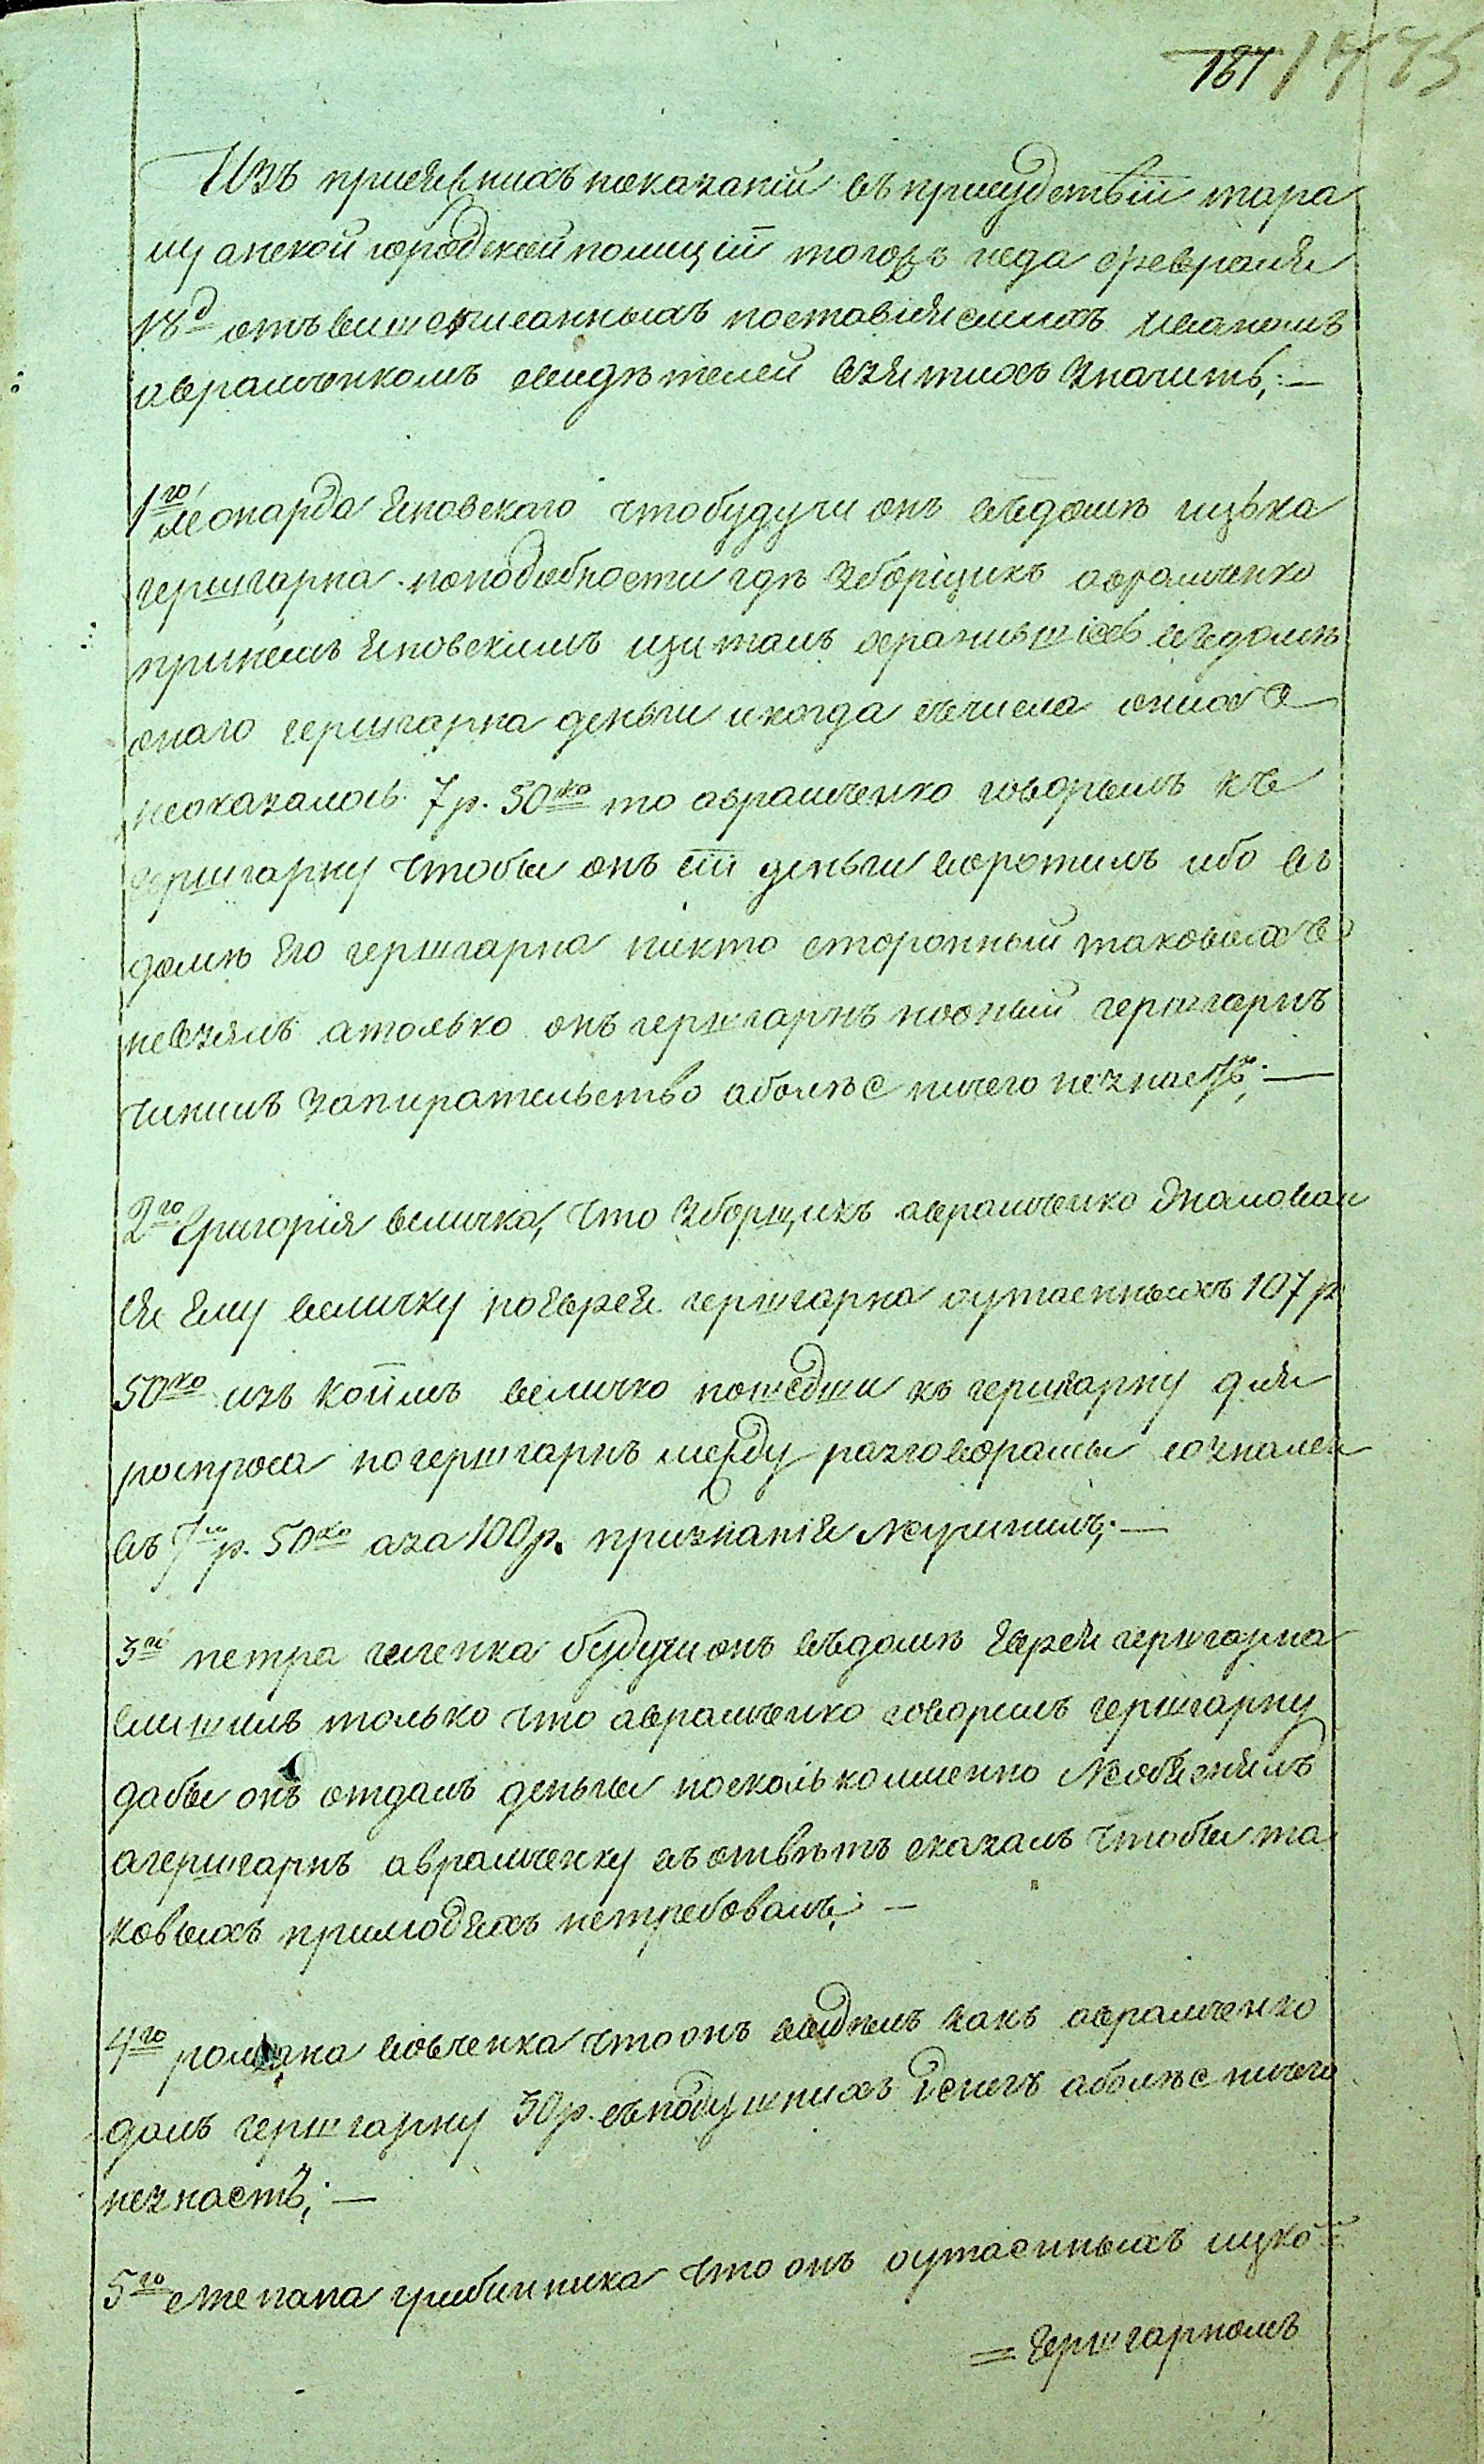 187 1775
Изъ присяжнихъ показаній въ присудствіи тара
щанской городской полиціи тогожъ года февраля
18д отъ вишеписанныхъ поставіянемихъ иваномъ
аврамченкомъ свидѣтелей взятихъ значитъ; —
1го Леонарда Яновского что будучи онъ въ домѣ ицька
гершгарна понадобности гдѣ зборщикъ аврамченко
принемъ Яновскимъ щиталъ бравшіесь въ домѣ
онаго гершгарна деньги и когда съ числа онихъ
неоказалось 7 р. 50ко то аврамченко говорилъ къ
гершгарну чтобы онъ сіи деньги воротилъ ибо въ
домѣ Его гершгарна никто сторонный таковыхъ
невзялъ атолько онъ гершгарнъ но оный гершгарнъ
чинилъ запирательство аболѣе ничего незнаетъ; —
2го Григорія величка, что зборщикъ аврамченко жаловал
ся Ему величку наЕврея гершгарна оутаенныхъ 107 р
50ко изъ коимъ величко пошедши къ гершгарну для
роспроса но гершгарнъ между разговорамы сознался
въ 7ми р. 50ко аза 100 р. признанія Неучинилъ; —
3го петра гиленка будучи онъ въ домѣ Еврея гершгарна
слишилъ только что аврамченко говорилъ гершгарну
дабы онъ отдалъ деньги носколько именно Необяснилъ
агершгарнъ аврамченку въ отвѣтъ сказалъ чтобы та
ковыхъ прилюдяхъ нетребовалъ; —
4го романа вовченка что онъ видѣлъ какъ аврамченко
далъ гершгарну 30 р. съ подушнихъ денегъ аболѣе ничего
незнаетъ; —
5го степана грибинника что онъ оутаенныхъ ицко=
= гершгарномъ